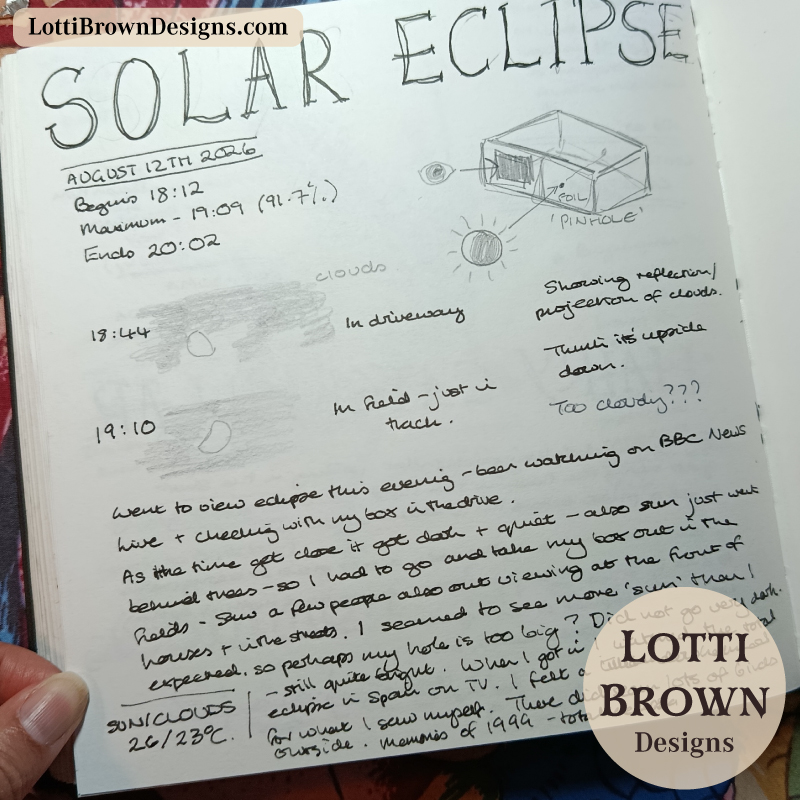 LottiBrownDesigns.com
SOLAR ECLIPSE
AUGUST 12TH 2026
Begins 18:12
Maximum - 19:09 (91.7%)
Ends 20:02
FOIL
'PINHOLE'
clouds
18:44
In driveway
Showing reflection/
projection of clouds.
Think it's upside
down.
19:10
In field - just in
track.
Too cloudy???
Went to view eclipse this evening - been watching on BBC News
live + checking with my box in the drive.
As the time got close it got dark + quiet - also sun just went
behind trees - so I had to go and take my box out in the
fields - saw a few people also out viewing at the front of
houses + in the streets. I seemed to see more 'sun' than I
expected, so perhaps my hole is too big? Did not go very dark.
- still quite bright. When I got in I
eclipse in Spain on TV. I felt a
for what I saw myself. There did lots of birds
outside. Memories of 1999 -
SUN/CLOUDS
26/23°C.
LOTTI
BROWN
Designs